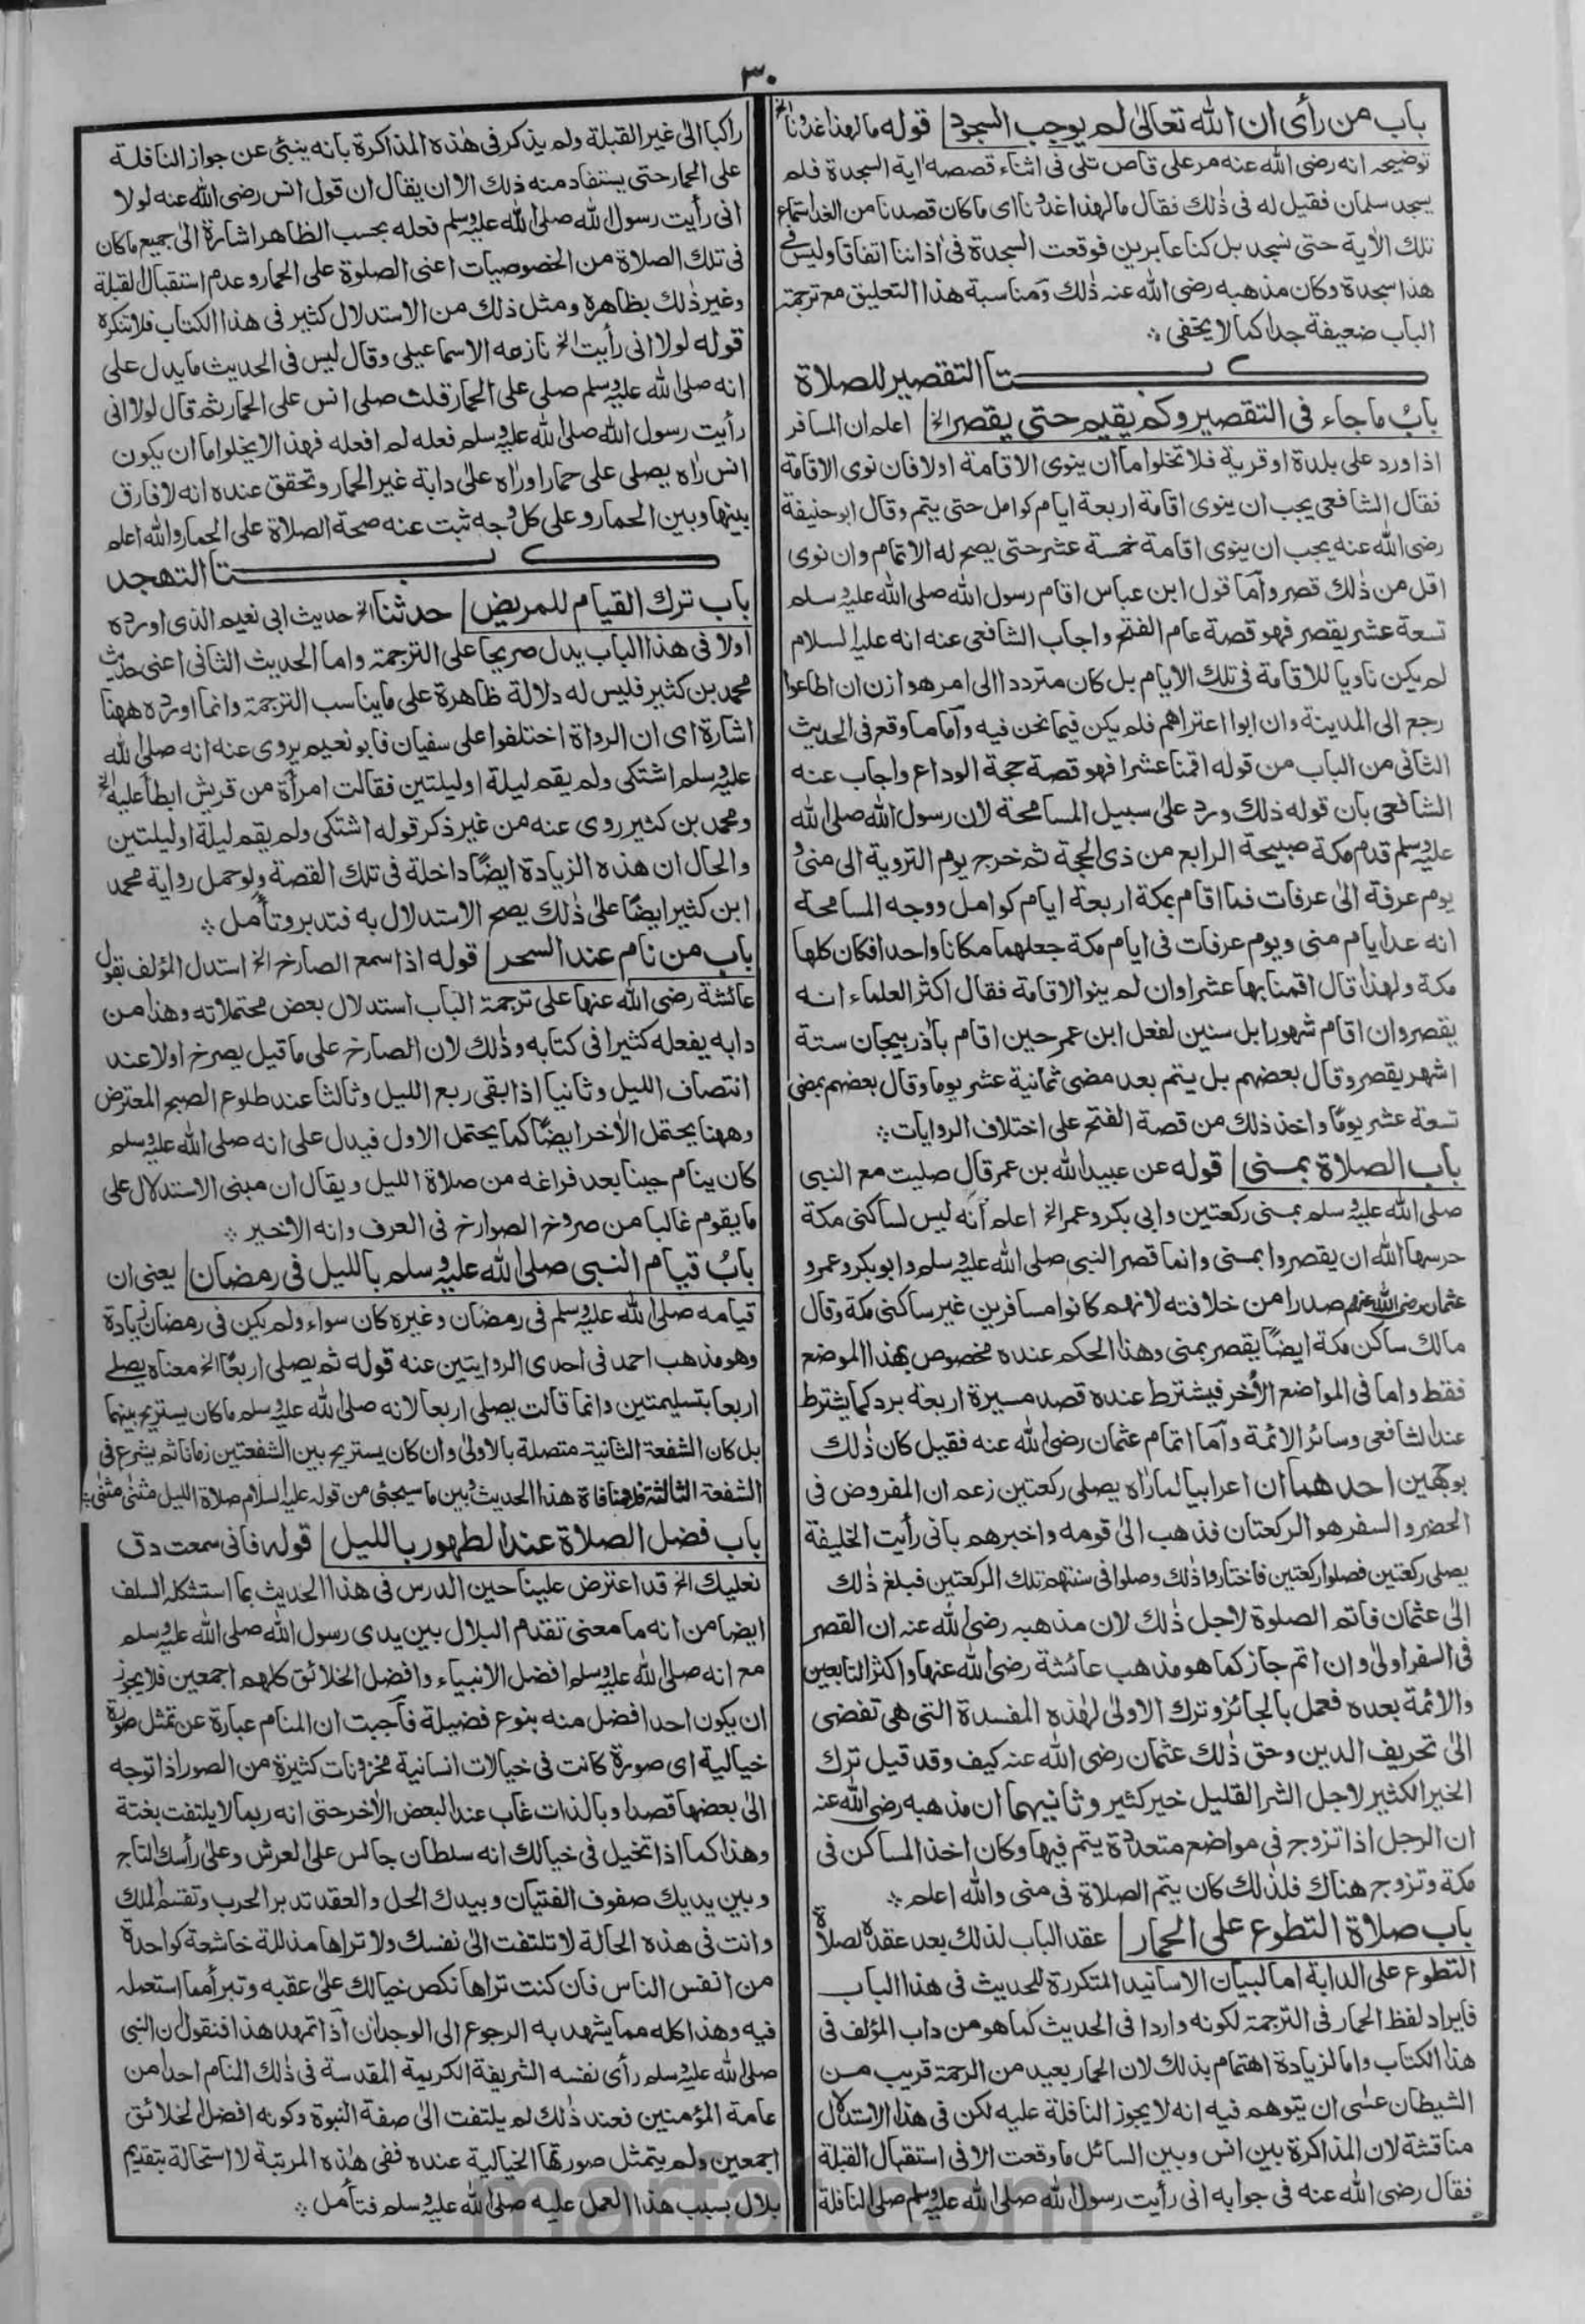 ٣٠
باب من رأى ان الله تعالىٰ لم يوجب السجود قوله ما لهذا غدونا الخ
توضيحه انه رضى الله عنه مر على قاص تلى فى اثناء قصصه اٰية السجدة فلم
يسجد سلمان فقيل له فى ذٰلك فقال ما لهذا غدونا اى ما كان قصدنا من الغد استماع
تلك الاٰية حتى نسجد بل كنا عابرين فوقعت السجدة فى اٰذاننا اتفاقا وليس فى
هذا سجدة وكان مذهبه رضى الله عنه ذٰلك ومناسبة هذا التعليق مع ترجمة
الباب ضعيفة جدا كما لا يخفى ؞
كتاب التقصير للصلاة
بابُ ما جاء فى التقصير وكم يقيم حتى يقصر الخ اعلم ان المسافر
اذا ورد على بلدة او قرية فلا تخلوا ما ان ينوى الاقامة اولا فان نوى الاقامة
فقال الشافعى يجب ان ينوى اقامة اربعة ايام كوامل حتى يتم وقال ابو حنيفة
رضى الله عنه يجب ان ينوى اقامة خمسة عشر حتى يصح له الاتمام وان نوى
اقل من ذٰلك قصر وأما قول ابن عباس اقام رسول الله صلى الله عليه وسلم
تسعة عشر يقصر فهو قصة عام الفتح واجاب الشافعى عنه انه عليه السلام
لم يكن ناويا للاقامة فى تلك الايام بل كان مترددا الى امر هوازن ان اطاعوا
رجع الى المدينة وان ابوا اعتراهم فلم يكن فيما نحن فيه وأما ما وقع فى الحديث
الثانى من الباب من قوله اقمنا عشرا فهو قصة حجة الوداع واجاب عنه
الشافعى بان قوله ذلك ورد علىٰ سبيل المسامحة لان رسول الله صلى الله
عليه وسلم قدم مكة صبيحة الرابع من ذى الحجة ثم خرج يوم التروية الى منى و
يوم عرفة الىٰ عرفات فما اقام بمكة اربعة ايام كوامل ووجه المسامحة
انه عد ايام منى ويوم عرفات فى ايام مكة جعلهما مكانا واحدا فكان كلها
مكة ولهذا قال اقمنا بها عشرا وان لم ينو الاقامة فقال اكثر العلماء انه
يقصر وان اقام شهورا بل سنين لفعل ابن عمر حين اقام باٰذربيجان ستة
اشهر يقصر وقال بعضهم بل يتم بعد مضى ثمانية عشر يوما وقال بعضهم بمضى
تسعة عشر يومًا واخذ ذلك من قصة الفتح على اختلاف الروايات ؞
باب الصلاة بمنى قوله عن عبيد الله بن عمر قال صليت مع النبى
صلى الله عليه وسلم بمنى ركعتين وابى بكر وعمر الخ اعلم أنه ليس لساكنى مكة
حرسها الله ان يقصروا بمنى وانما قصر النبى صلى الله عليه وسلم وابو بكر وعمر و
عثمان رضى الله عنهم صدرا من خلافته لانهم كانوا مسافرين غير ساكنى مكة وقال
مالك ساكن مكة ايضًا يقصر بمنى وهذا الحكم عنده مخصوص بهذا الموضع
فقط واما فى المواضع الأخر فيشترط عنده قصد مسيرة اربعة برد كما يشترط
عند الشافعى وسائر الائمة وأما اتمام عثمان رضى الله عنه فقيل كان ذٰلك
بوجهين احدهما ان اعرابيا لما رأه يصلى ركعتين زعم ان المفروض فى
الحضر والسفر هو الركعتان فذهب الىٰ قومه واخبرهم بانى رأيت الخليفة
يصلى ركعتين فصلوا ركعتين فاختاروا ذٰلك وصلوا فى سنتهم تلك الركعتين فبلغ ذٰلك
الىٰ عثمان فاتم الصلوة لاجل ذٰلك لان مذهبه رضى الله عنه ان القصر
فى السفر اولىٰ وان اتم جاز كما هو مذهب عائشة رضى الله عنها واكثر التابعين
والائمة بعده فعمل بالجائز وترك الاولىٰ لهٰذه المفسدة التى هى تفضى
الىٰ تحريف الدين وحق ذٰلك عثمان رضى الله عنه كيف وقد قيل ترك
الخير الكثير لاجل الشر القليل خير كثير وثانيهما ان مذهبه رضى الله عنه
ان الرجل اذا تزوج فى مواضع متعددة يتم فيها وكان اخذ المساكن فى
مكة وتزوج هناك فلذٰلك كان يتم الصلاة فى منى والله اعلم ؞
باب صلاة التطوع على الحمار عقد الباب لذلك بعد عقده لصلاة
التطوع على الدابة اما لبيان الاسانيد المتكررة للحديث فى هذا الباب
فايراد لفظ الحمار فى الترجمة لكونه واردا فى الحديث كما هو من داب المؤلف فى
هذا الكتاب واما لزيادة اهتمام بذلك لان الحمار بعيد من الرحمة قريب من
الشيطان عسى ان يتوهم فيه انه لا يجوز النافلة عليه لكن فى هذا الاستدلال
مناقشة لان المذاكرة بين انس وبين السائل ما وقعت الا فى استقبال القبلة
فقال رضى الله عنه فى جوابه انى رأيت رسول الله صلى الله عليه وسلم صلى النافلة
راكبا الىٰ غير القبلة ولم يذكر فى هٰذه المذاكرة بانه ينبئى عن جواز النافلة
على الحمار حتى يستفاد منه ذٰلك الا ان يقال ان قول انس رضى الله عنه لولا
انى رأيت رسول الله صلى الله عليه وسلم فعله بحسب الظاهر اشارة الىٰ جميع ما كان
فى تلك الصلاة من الخصوصيات اعنى الصلوة على الحمار وعدم استقبال القبلة
وغير ذٰلك بظاهره ومثل ذلك من الاستدلال كثير فى هذا الكتاب فلا تنكره
قوله لولا انى رأيت الخ نازعه الاسماعيلى وقال ليس فى الحديث ما يدل على
انه صلى الله عليه وسلم صلى على الحمار قلت صلى انس على الحمار ثم قال لولا انى
رأيت رسول الله صلى الله عليه وسلم فعله لم افعله فهذا لا يخلوا ما ان يكون
انس رأه يصلى على حمار او رأه علىٰ دابة غير الحمار وتحقق عنده انه لا فارق
بينها وبين الحمار وعلى كل وجه ثبت عنه صحة الصلاة على الحمار والله اعلم
كتاب التهجد
باب ترك القيام للمريض حدثنا الخ حديث ابى نعيم الذى اورده
اولا فى هذا الباب يدل صريحا على الترجمة واما الحديث الثانى اعنى حديث
محمد بن كثير فليس له دلالة ظاهرة على ما يناسب الترجمة وانما اورده ههنا
اشارة اى ان الرواة اختلفوا على سفيان فابو نعيم يروى عنه انه صلى الله
عليه وسلم اشتكى ولم يقم ليلة او ليلتين فقالت امرأة من قريش ابطأ عليه الخ
ومحمد بن كثير روى عنه من غير ذكر قوله اشتكى ولم يقم ليلة او ليلتين
والحال ان هذه الزيادة ايضًا داخلة فى تلك القصة ولو حمل رواية محمد
ابن كثير ايضًا علىٰ ذٰلك يصح الاستدلال به فتدبر وتأمل ؞
باب من نام عند السحر قوله اذا سمع الصارخ الخ استدل المؤلف بقول
عائشة رضى الله عنها على ترجمة الباب استدلال بعض محتملاته وهذا من
دابه يفعله كثيرا فى كتابه وذٰلك لان الصارخ على ما قيل يصرخ اولا عند
انتصاف الليل وثانيا اذا بقى ربع الليل وثالثا عند طلوع الصبح المعترض
وههنا يحتمل الأخر ايضًا كما يحتمل الاول فيدل على انه صلى الله عليه وسلم
كان ينام حينا بعد فراغه من صلاة الليل ويقال ان مبنى الاستدلال على
ما يقوم غالبا من صروخ الصوارخ فى العرف وانه الاخير ؞
بابُ قيام النبى صلى الله عليه وسلم بالليل فى رمضان يعنى ان
قيامه صلى الله عليه وسلم فى رمضان وغيره كان سواء ولم يكن فى رمضان زيادة
وهو مذهب احمد فى احدى الروايتين عنه قوله ثم يصلى اربعًا الخ معناه يصلے
اربعا بتسليمتين وانما قالت يصلى اربعا لانه صلى الله عليه وسلم ما كان يستريح بينهما
بل كان الشفعة الثانية متصلة بالاولىٰ وان كان يستريح بين الشفعتين زمانا ثم يشرع فى
الشفعة الثالثة فلا منافاة هذا الحديث وبين ما سيجئى من قوله عليه السلام صلاة الليل مثنى مثنى ؞
باب فضل الصلاة عند الطهور بالليل قوله فانى سمعت دق
نعليك الخ قد اعترض علينا حين الدرس فى هذا الحديث بما استشكله السلف
ايضا من انه ما معنى تقدم البلال بين يدى رسول الله صلى الله عليه وسلم
مع انه صلى الله عليه وسلم افضل الانبياء وافضل الخلائق كلهم اجمعين فلا يجوز
ان يكون احد افضل منه بنوع فضيلة فأجبت ان المنام عبارة عن تمثل صورة
خيالية اى صورة كانت فى خيالات انسانية مخزونات كثيرة من الصور اذا توجه
الىٰ بعضها قصدا وبالذات غاب عند البعض الاٰخر حتى انه ربما لا يلتفت بغتة
وهذا كما اذا تخيل فى خيالك انه سلطان جالس على العرش وعلىٰ رأسك التاج
وبين يديك صفوف الفتيان وبيدك الحل والعقد تدبر الحرب وتقسم الملك
وانت فى هذه الحالة لا تلتفت الىٰ نفسك ولا تراها مذللة خاشعة كواحدة
من انفس الناس فان كنت تراها نكص خيالك علىٰ عقبه وتبرأ مما استعمله
فيه وهذا كله مما يشهد به الرجوع الى الوجدان اذا تمهد هذا فنقول ان النبى
صلى الله عليه وسلم رأى نفسه الشريفة الكريمة المقدسة فى ذٰلك المنام احدا من
عامة المؤمنين فعند ذٰلك لم يلتفت الىٰ صفة النبوة وكونه افضل الخلائق
اجمعين ولم يتمثل صورتها الخيالية عنده ففى هٰذه المرتبة لا استحالة بتقديم
بلال بسبب هذا العمل عليه صلى الله عليه وسلم فتأمل ؞